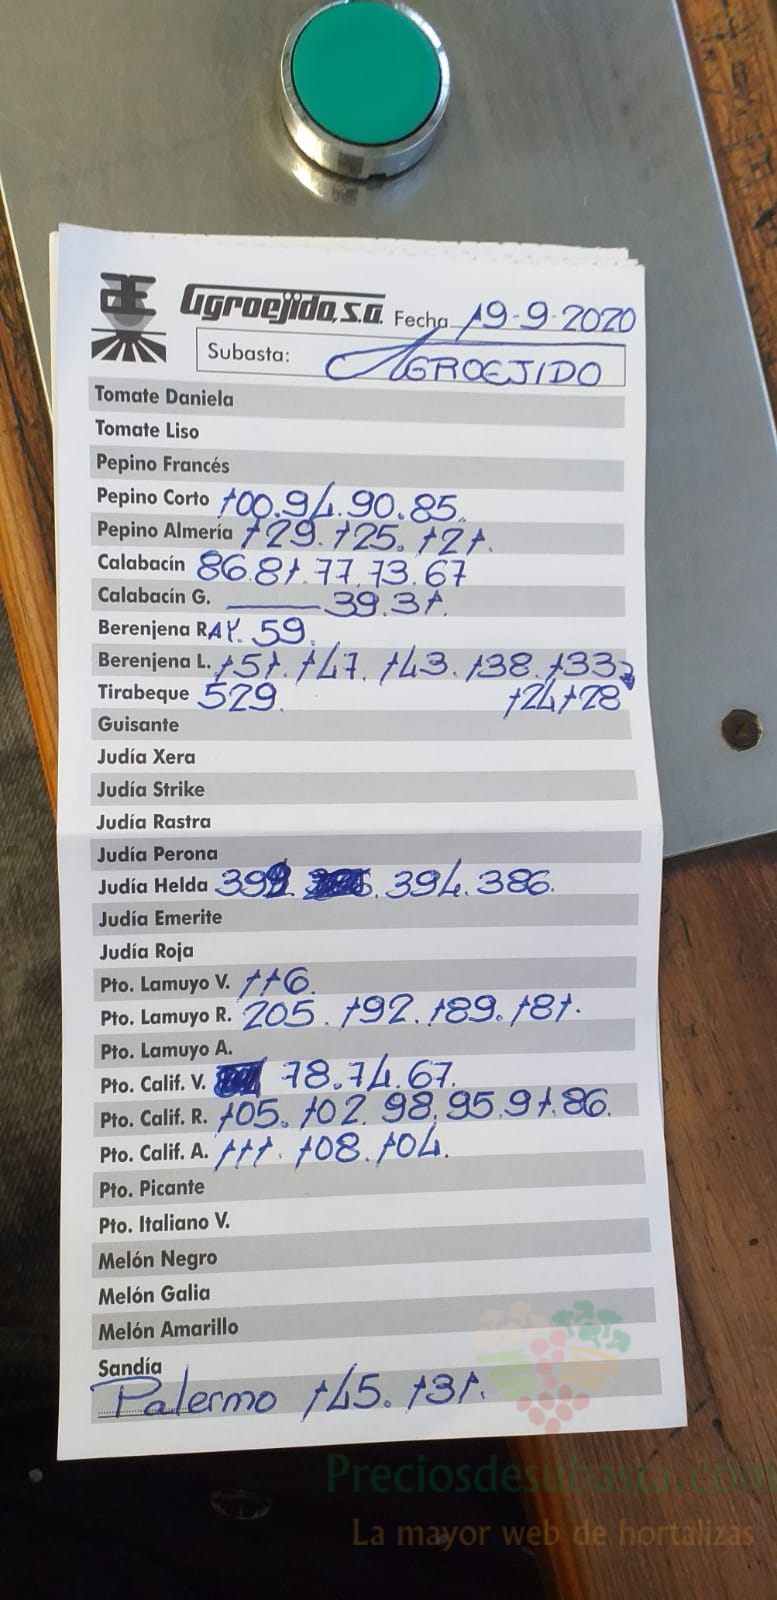 Agroejido, S.A. Fecha 19-9-2020
Subasta: AGROEJIDO
Tomate Daniela
Tomate Liso
Pepino Francés
Pepino Corto 100.94.90.85.
Pepino Almería 129.125.121.
Calabacín 86.81.77.73.67
Calabacín G. —— 39.31.
Berenjena RAY. 59.
Berenjena L. 151.147.143.138.133
Tirabeque 529. 124 128
Guisante
Judía Xera
Judía Strike
Judía Rastra
Judía Perona
Judía Helda 394.386.
Judía Emerite
Judía Roja
Pto. Lamuyo V. 116.
Pto. Lamuyo R. 205.192.189.181.
Pto. Lamuyo A.
Pto. Calif. V. 78.74.67.
Pto. Calif. R. 105.102.98.95.91.86.
Pto. Calif. A. 111.108.104.
Pto. Picante
Pto. Italiano V.
Melón Negro
Melón Galia
Melón Amarillo
Sandía
Palermo 145.131.
Preciosdesubasta.com
La mayor web de hortalizas